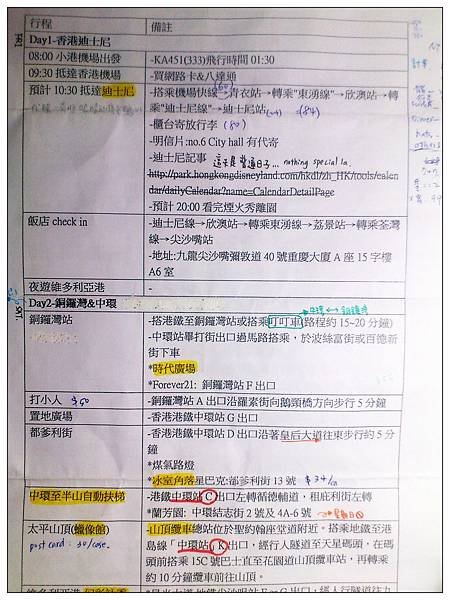 行程 備註
Day1-香港迪士尼
08:00 小港機場出發 -KA451(333)飛行時間 01:30
09:30 抵達香港機場 -買網路卡&八達通
預計 10:30 抵達迪士尼 -搭乘機場快線→青衣站→轉乘"東湧線"→欣澳站→轉
乘"迪士尼線"→迪士尼站 (84)
-櫃台寄放行李 (80)
-明信片:no.6 City hall 有代寄
-迪士尼記事 這天是普通日子... nothing special la.
http://park.hongkongdisneyland.com/hkdl/zh_HK/tools/calen
dar/dailyCalendar?name=CalendarDetailPage
-預計 20:00 看完煙火秀離園
飯店 check in -迪士尼線→欣澳站→轉乘東湧線→荔景站→轉乘荃灣
線→尖沙嘴站
-地址:九龍尖沙嘴彌敦道 40 號重慶大廈 A 座 15 字樓
A6 室
夜遊維多利亞港 -
Day2-銅鑼灣&中環
銅鑼灣站 -搭港鐵至銅鑼灣站或搭乘叮叮車(路程約 15~20 分鐘)
-中環站畢打街出口過馬路搭乘，於波絲富街或百德新
街下車
*時代廣場
*Forever21: 銅鑼灣站 F 出口
打小人 $50 -銅鑼灣站 A 出口沿羅素街向鵝頸橋方向步行 5 分鐘
置地廣場 -香港港鐵中環站 G 出口
都爹利街 -香港港鐵中環站 D 出口沿著皇后大道往東步行約 5 分
鐘
*煤氣路燈
*冰室角落星巴克:都爹利街 13 號 $34/cu
中環至半山自動扶梯 -港鐵中環站 C 出口左轉循德輔道，租庇利街左轉
*蘭芳園: 中環結志街 2 號及 4A-6 號
太平山頂(蠟像館) -山頂纜車總站位於聖約翰座堂道附近。搭乘地鐵至港
post card: 30/case. 島線「中環站」K 出口，經行人隧道至天星碼頭，在碼
頭前搭乘 15C 號巴士直至花園道山頂纜車站，再轉乘
約 10 分鐘纜車前往山頂。